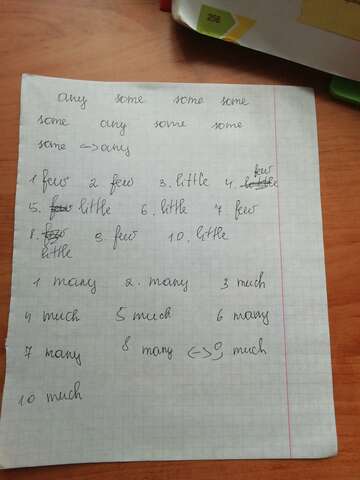 258
any some some some
some any some some
some <-> any
1 few 2 few 3. little 4. few
5. little 6. little 7 few
8. little 9. few 10. little
1 many 2. many 3 much
4 much 5 much 6 many
7 many 8 many <-> 9 much
10 much